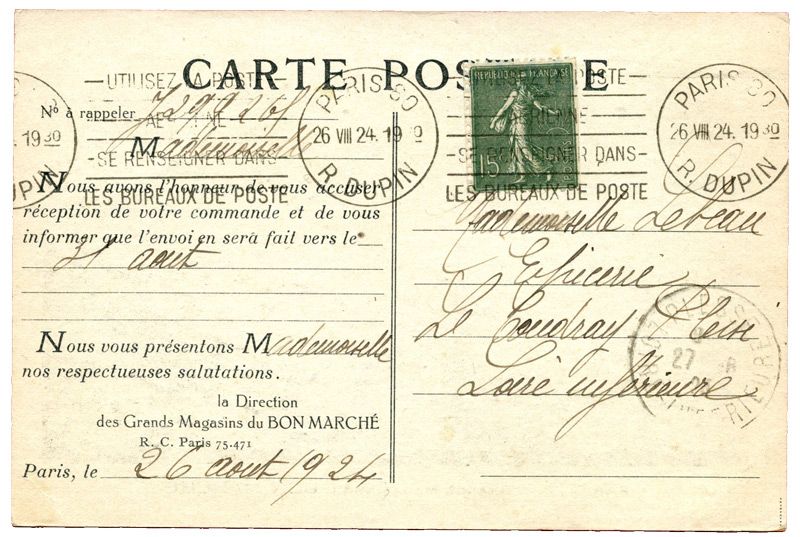 CARTE POSTALE
UTILISEZ LA POSTE
AÉRIENNE
SE RENSEIGNER DANS
LES BUREAUX DE POSTE
PARIS 80
26 VIII 24. 19 30
R. DUPIN
REPUBLIQUE FRANÇAISE
15
UTILISEZ LA POSTE
AÉRIENNE
SE RENSEIGNER DANS
LES BUREAUX DE POSTE
PARIS 80
26 VIII 24. 19 30
R. DUPIN
. 19 30
DUPIN
Nº à rappeler
Mademoiselle
Nous avons l'honneur de vous accuser
réception de votre commande et de vous
informer que l'envoi en sera fait vers le
31 août
Nous vous présentons Mademoiselle
nos respectueuses salutations.
la Direction
des Grands Magasins du BON MARCHÉ
R. C. Paris 75-471
Paris, le 26 août 1924
Mademoiselle Lebeau
Epicerie
Le Coudray Plessé
Loire inférieure
27